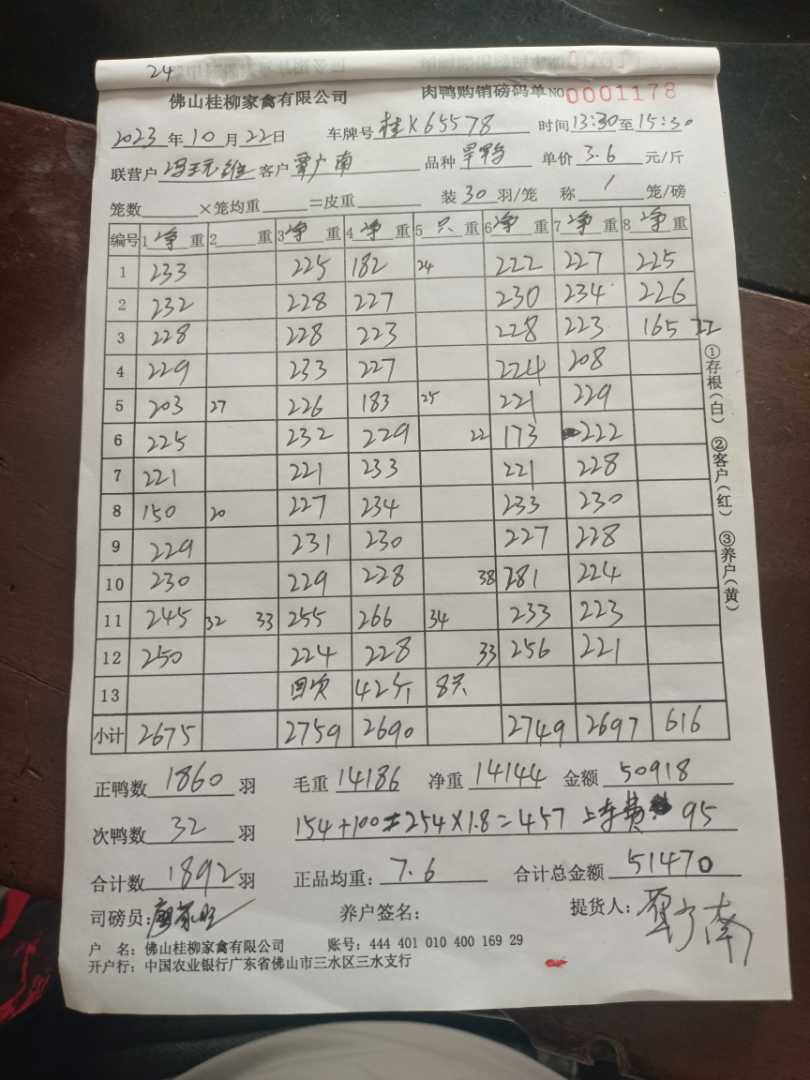 24
佛山桂柳家禽有限公司 肉鸭购销磅码单 NO 0001178
2023年10月22日 车牌号 桂K65578 时间13:30至15:30
联营户 客户 覃广南 品种 旱鸭 单价 3.6 元/斤
笼数 ×笼均重 =皮重 装30羽/笼 称 1 笼/磅
编号 1净重 2 重 3净重 4净重 5只重 6净重 7净重 8净重
1 233 225 182 24 222 227 225
2 232 228 227 230 234 226
3 228 228 223 228 223 165 22
4 229 233 227 224 208
5 203 27 226 183 25 221 229
6 225 232 229 22 173 222
7 221 221 233 221 228
8 150 20 227 234 233 230
9 229 231 230 227 228
10 230 229 228 38 281 224
11 245 32 33 255 266 34 233 223
12 250 224 228 33 256 221
13 回负 42斤 8只
小计 2675 2759 2690 2749 2697 616
正鸭数 1860 羽 毛重 14186 净重 14144 金额 50918
次鸭数 32 羽 154+100=254×1.8=457 上车费 95
合计数 1892 羽 正品均重: 7.6 合计总金额 51470
司磅员: 养户签名: 提货人: 覃广南
户 名: 佛山桂柳家禽有限公司 账号: 444 401 010 400 169 29
开户行: 中国农业银行广东省佛山市三水区三水支行
①存根(白) ②客户(红) ③养户(黄)